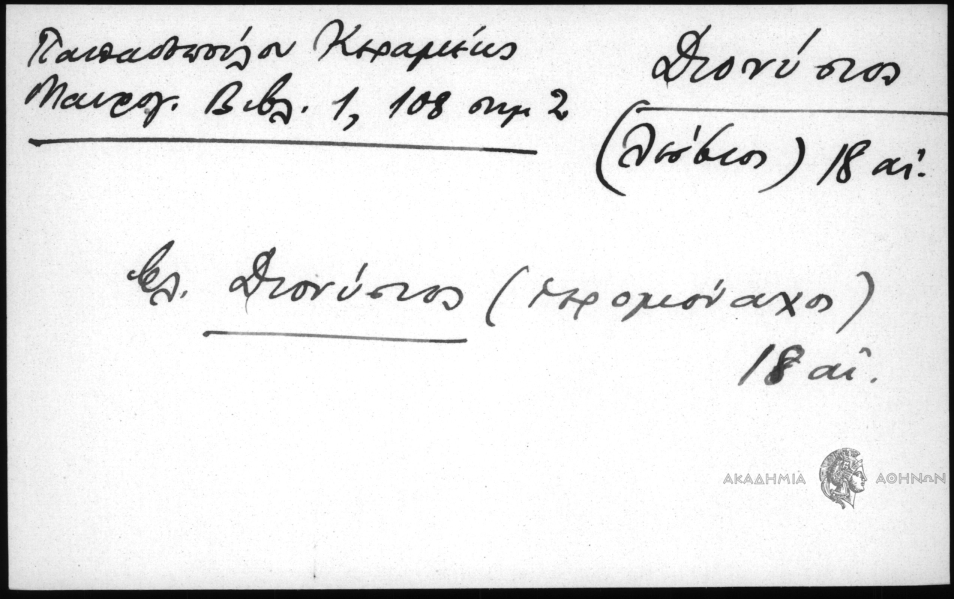 Παπαδοπούλου Κεραμέως
Μαυρογ. Βιβλ. 1, 108 σημ 2
Διονύσιος
(Λέσβιος) 18 αἰ.
βλ. Διονύσιος (ἱερομόναχος)
18 αἰ.
ΑΚΑΔΗΜΙΑ ΑΘΗΝΩΝ